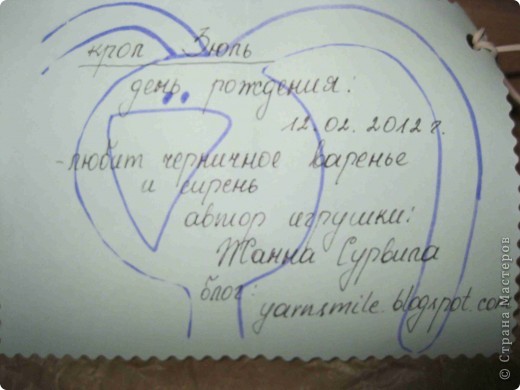 крол Зюль
день рождения:
12.02.2012 г.
-любит черничное варенье
и сирень
автор игрушки:
Жанна Сурвила
блог:
yarnsmile.blogspot.com
© Страна Мастеров